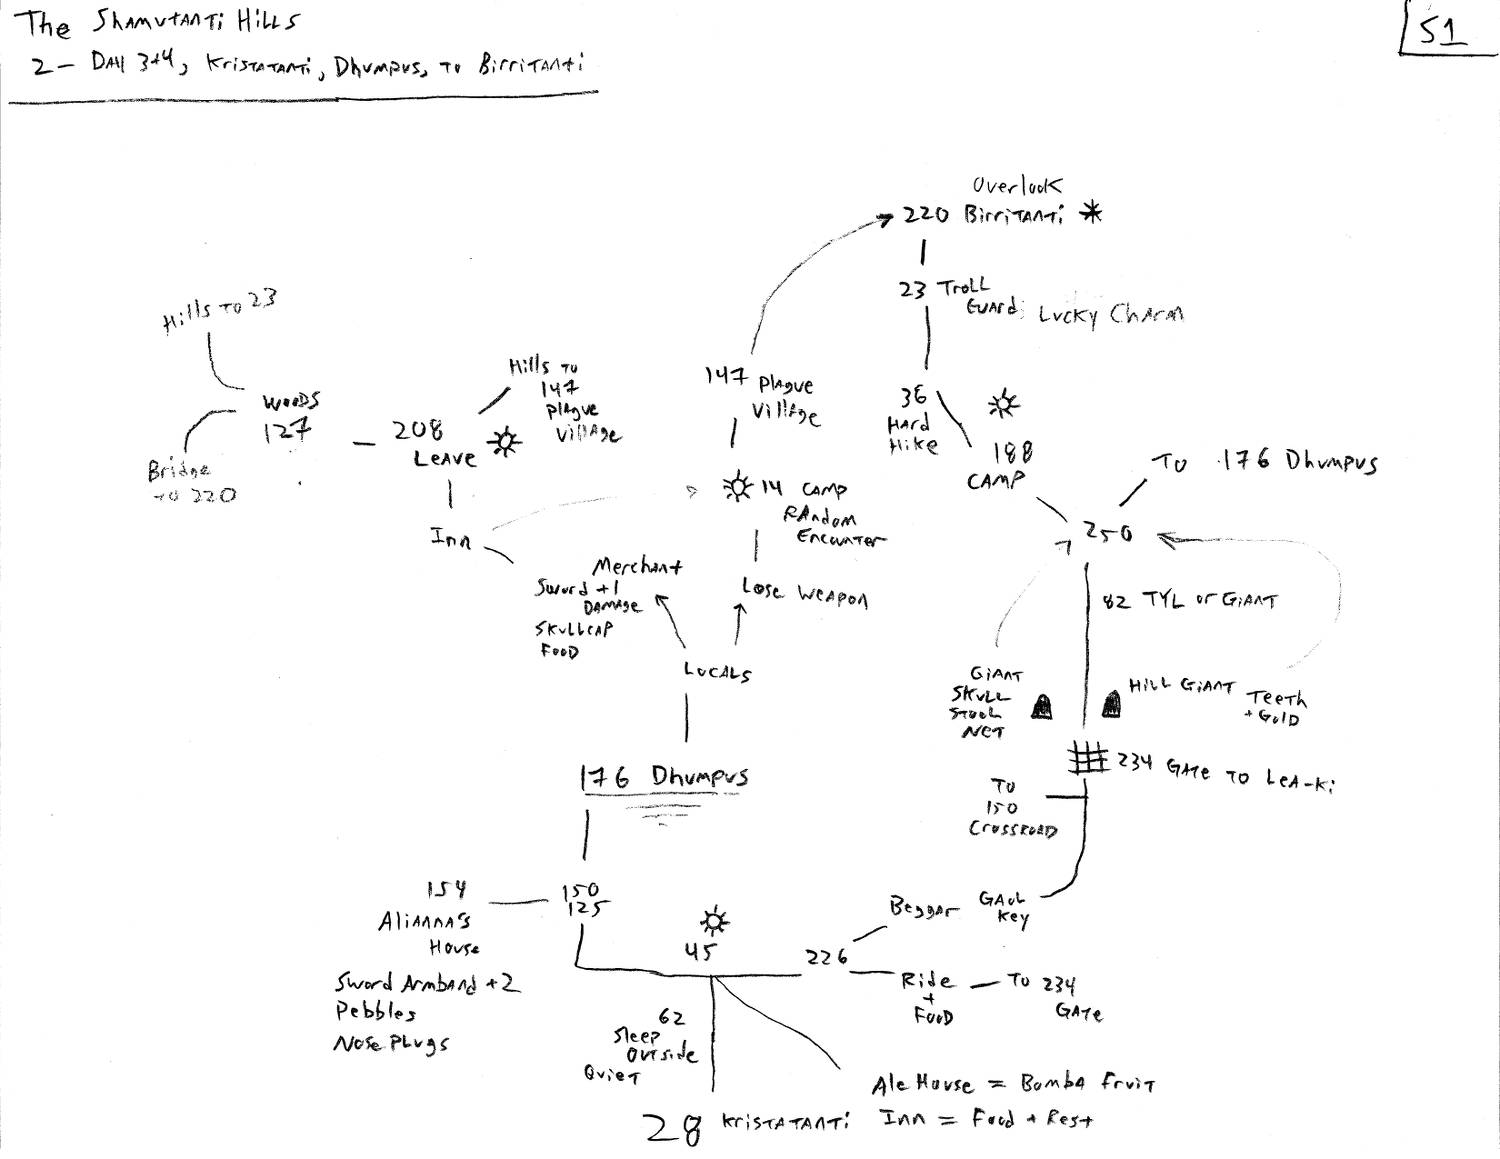 The Shamutanti Hills
S1
2 - Day 3+4, Kristatanti, Dhumpus, to Birritanti
Overlook
220 Birritanti
23 Troll
Guard
Lucky Charm
Hills to 23
Woods
127
Bridge
to 220
208
Leave
Hills to
147
Plague
Village
147 Plague
Village
36
Hard
Hike
188
Camp
To 176 Dhumpus
250
Inn
14 Camp
Random
Encounter
Merchant
Sword +1
Damage
Skullcap
Food
Lose Weapon
82 TYL or Giant
Locals
Giant
Skull
Stool
Net
Hill Giant
Teeth
+ Gold
176 Dhumpus
234 Gate to Lea-Ki
To
150
Crossroad
154
Alianna's
House
150
125
Sword Armband +2
Pebbles
Nose Plugs
45
226
Beggar
Gaol
Key
Ride
+
Food
To 234
Gate
62
Sleep
Outside
Quiet
Ale House = Bomba Fruit
28 Kristatanti
Inn = Food + Rest